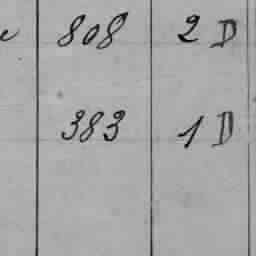 808 2 D
383 1 D